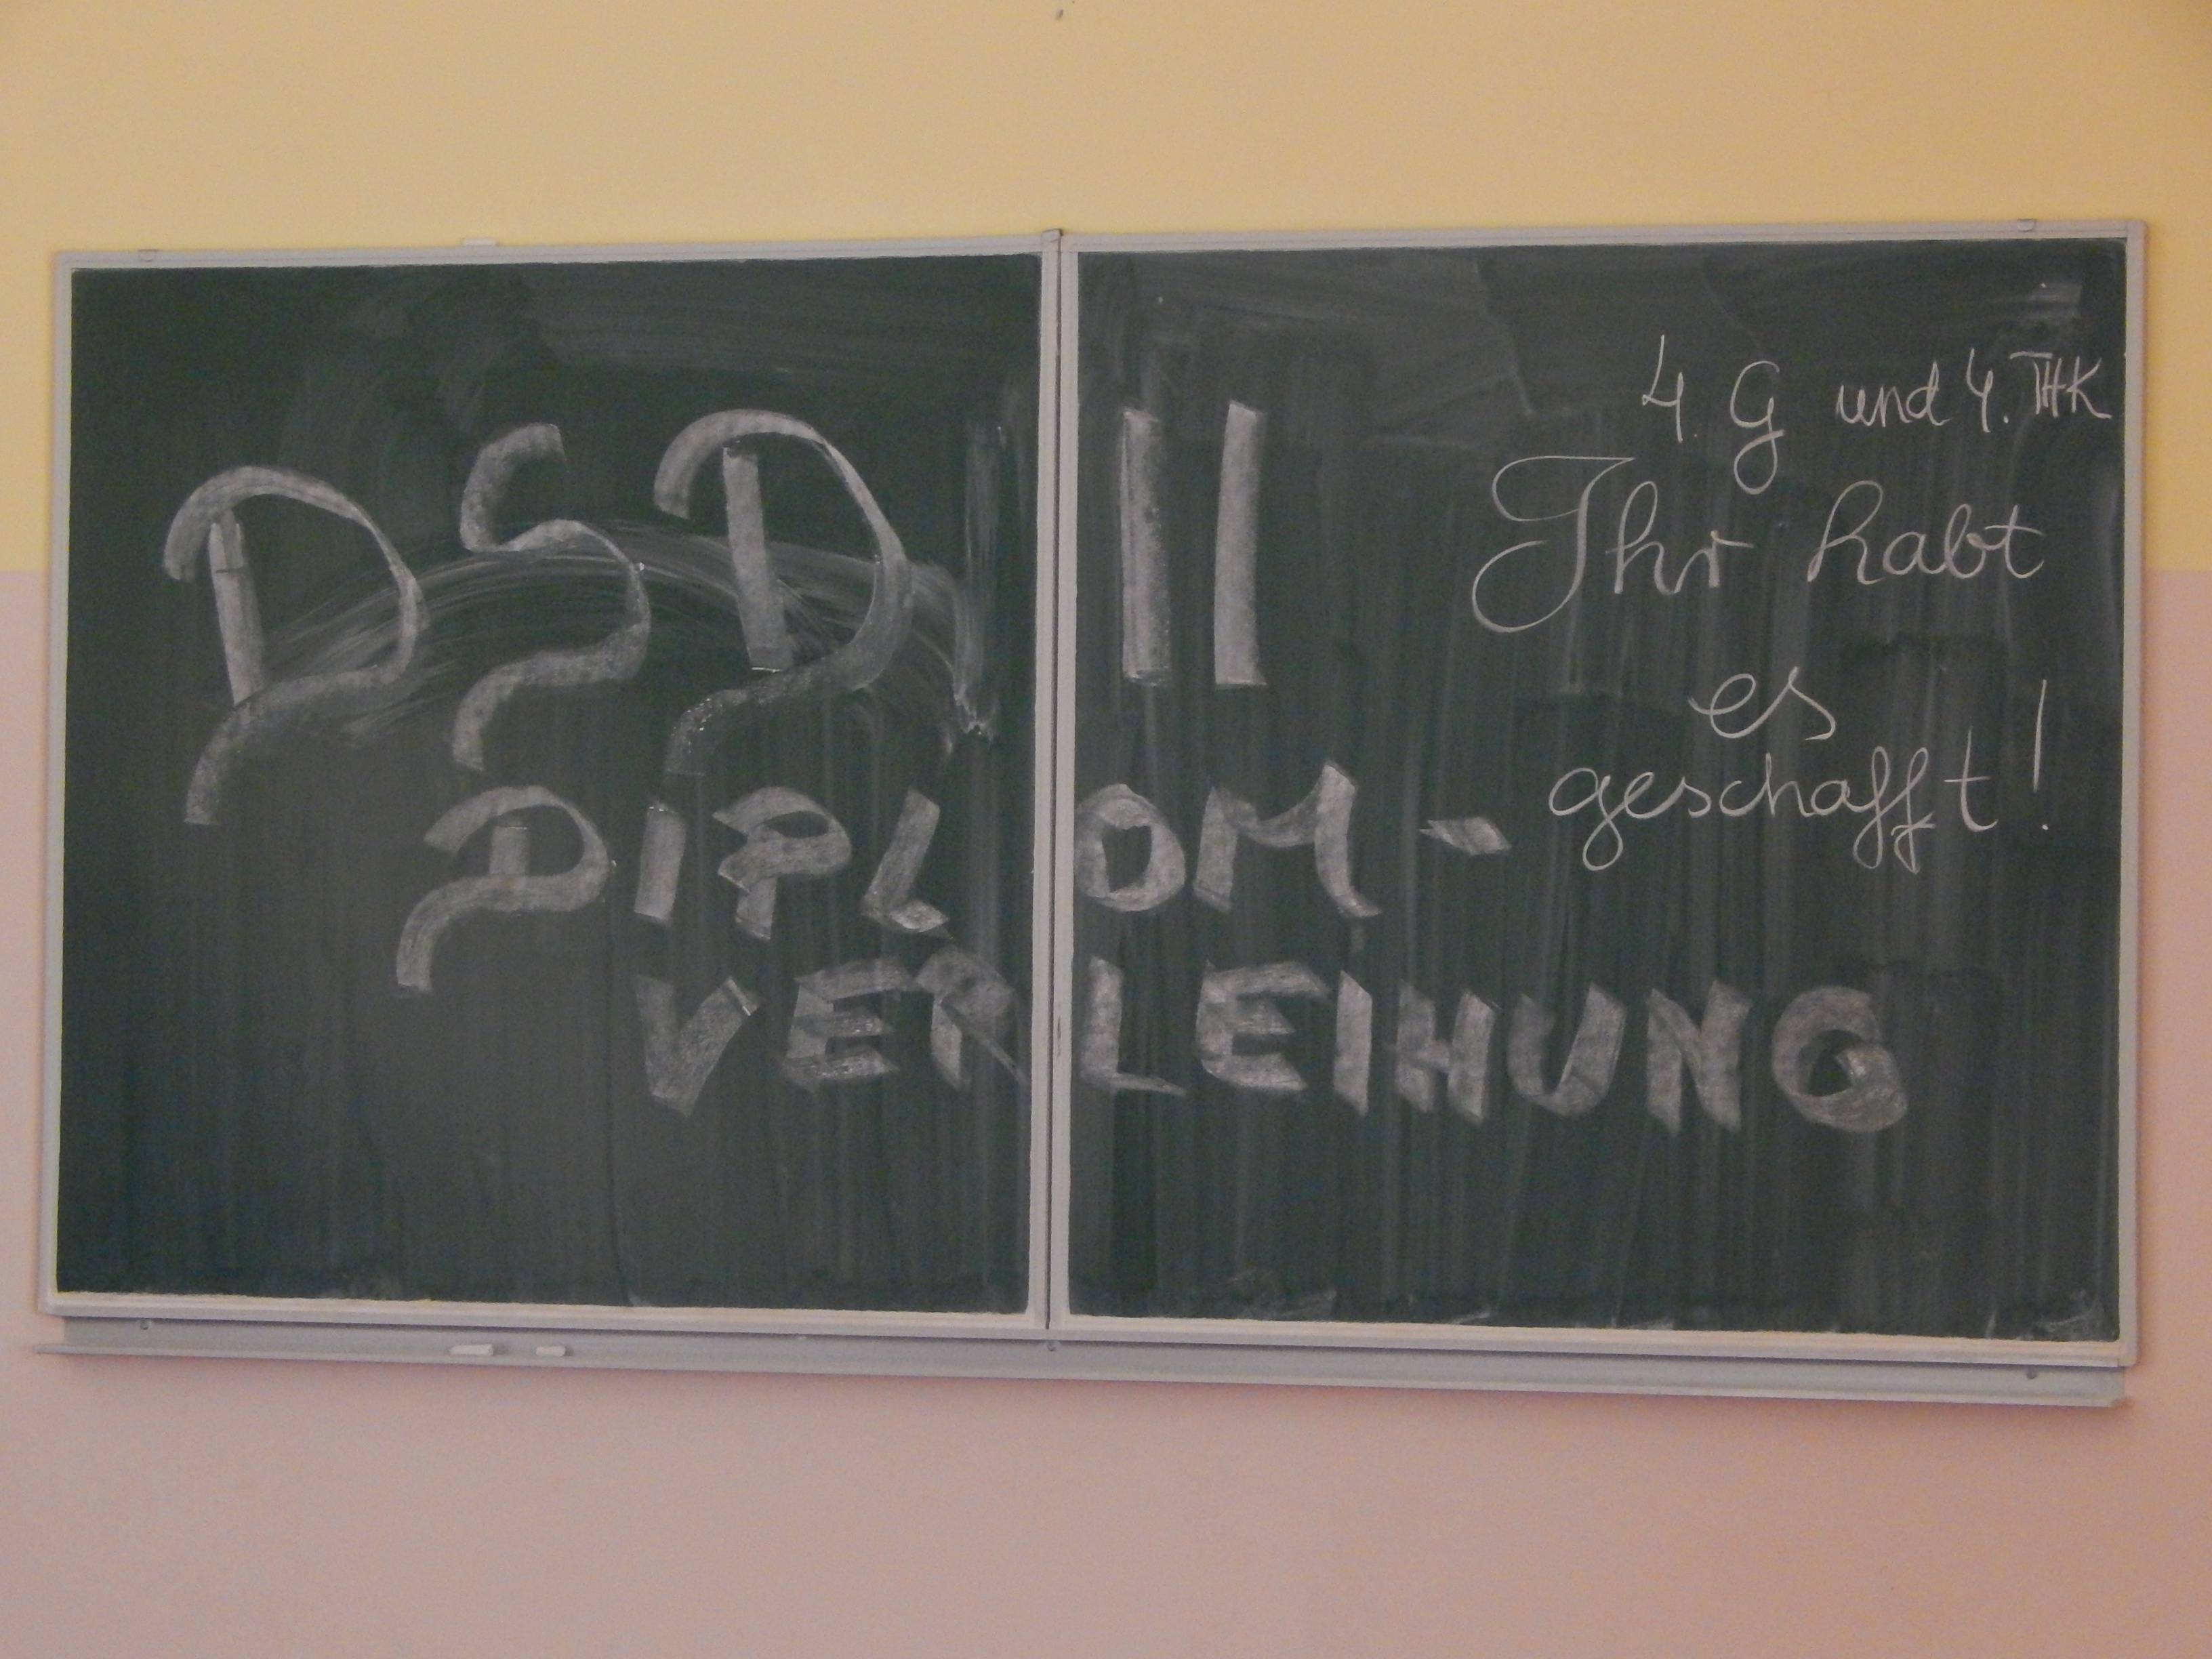 DSD II
DIPLOM-
VERLEIHUNG
4. G und 4. THK
Ihr habt
es
geschafft!